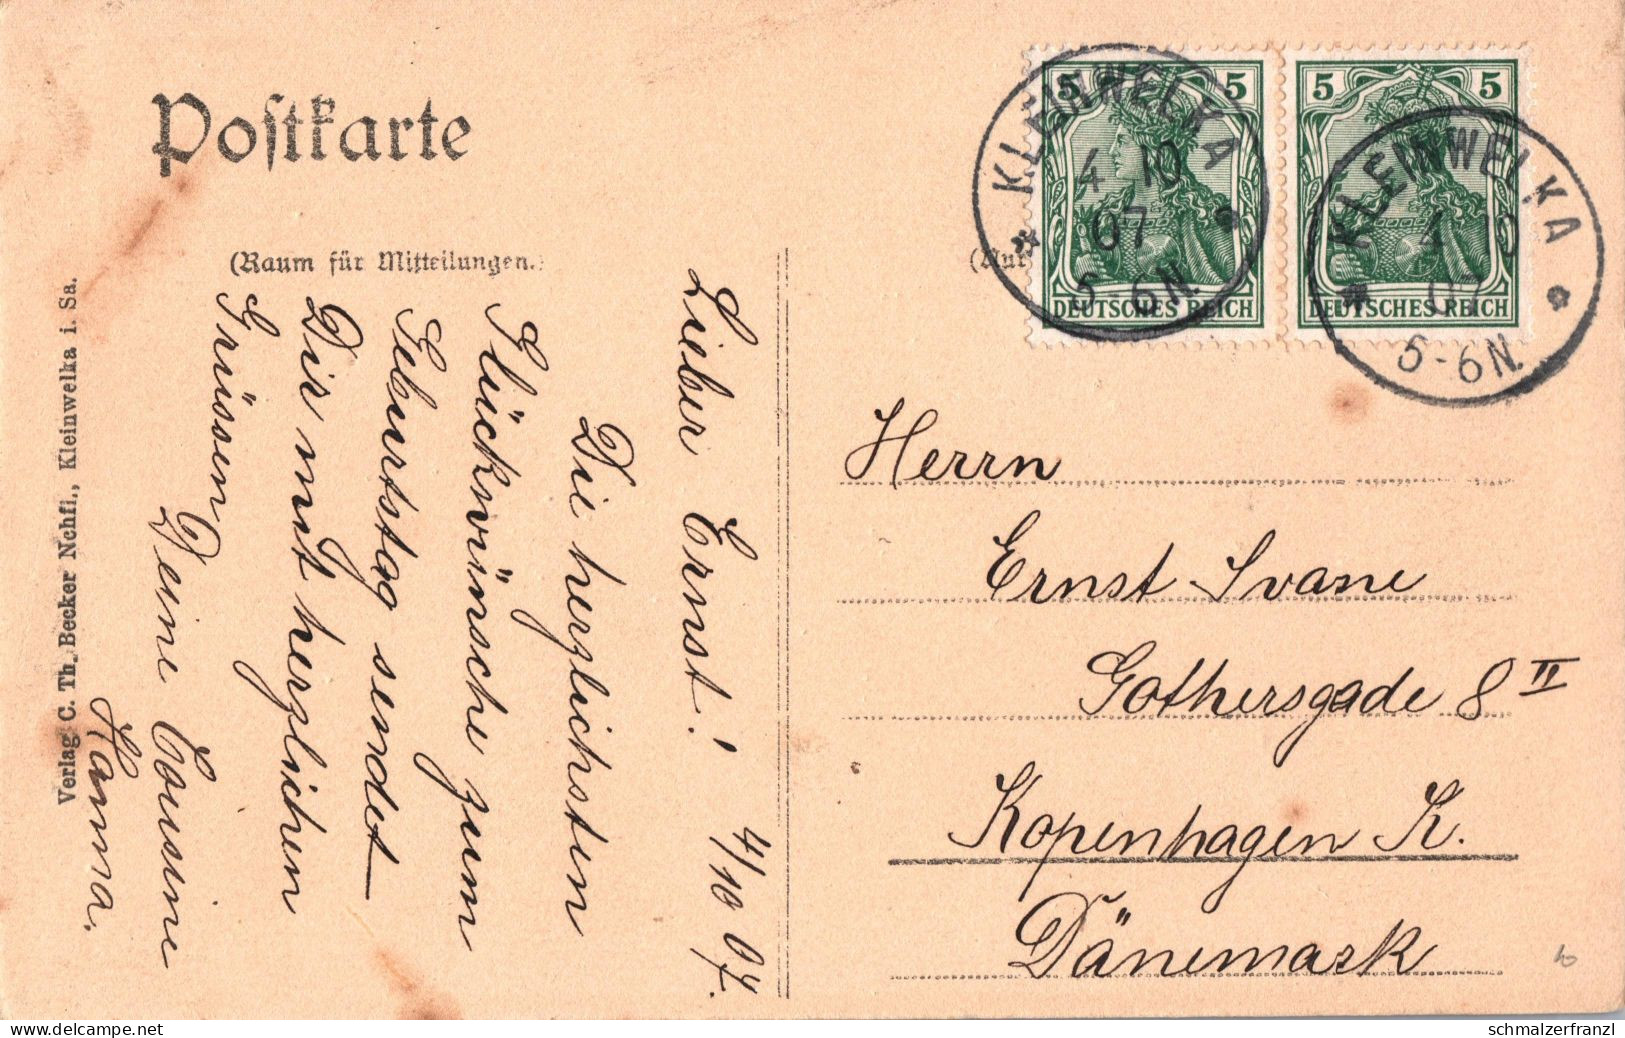 Postkarte
(Raum für Mitteilungen.)
Verlag C. Th. Becker Nchfl., Kleinwelka i. Sa.
4/10 07.
Lieber Ernst!
Die herzlichsten
Glückwünsche zum
Geburtstag sendet
Dir mit herzlichen
Grüssen
Deine Cousine
Hanna.
5 5
DEUTSCHES REICH
5 5
DEUTSCHES REICH
KLEINWELKA
4 10
07
5-6N.
KLEINWELKA
4 10
07
5-6N.
Herrn
Ernst Svane
Gothersgade 8 II
Kopenhagen K.
Dänemark
10
delcampe.net
schmalzerfranzl